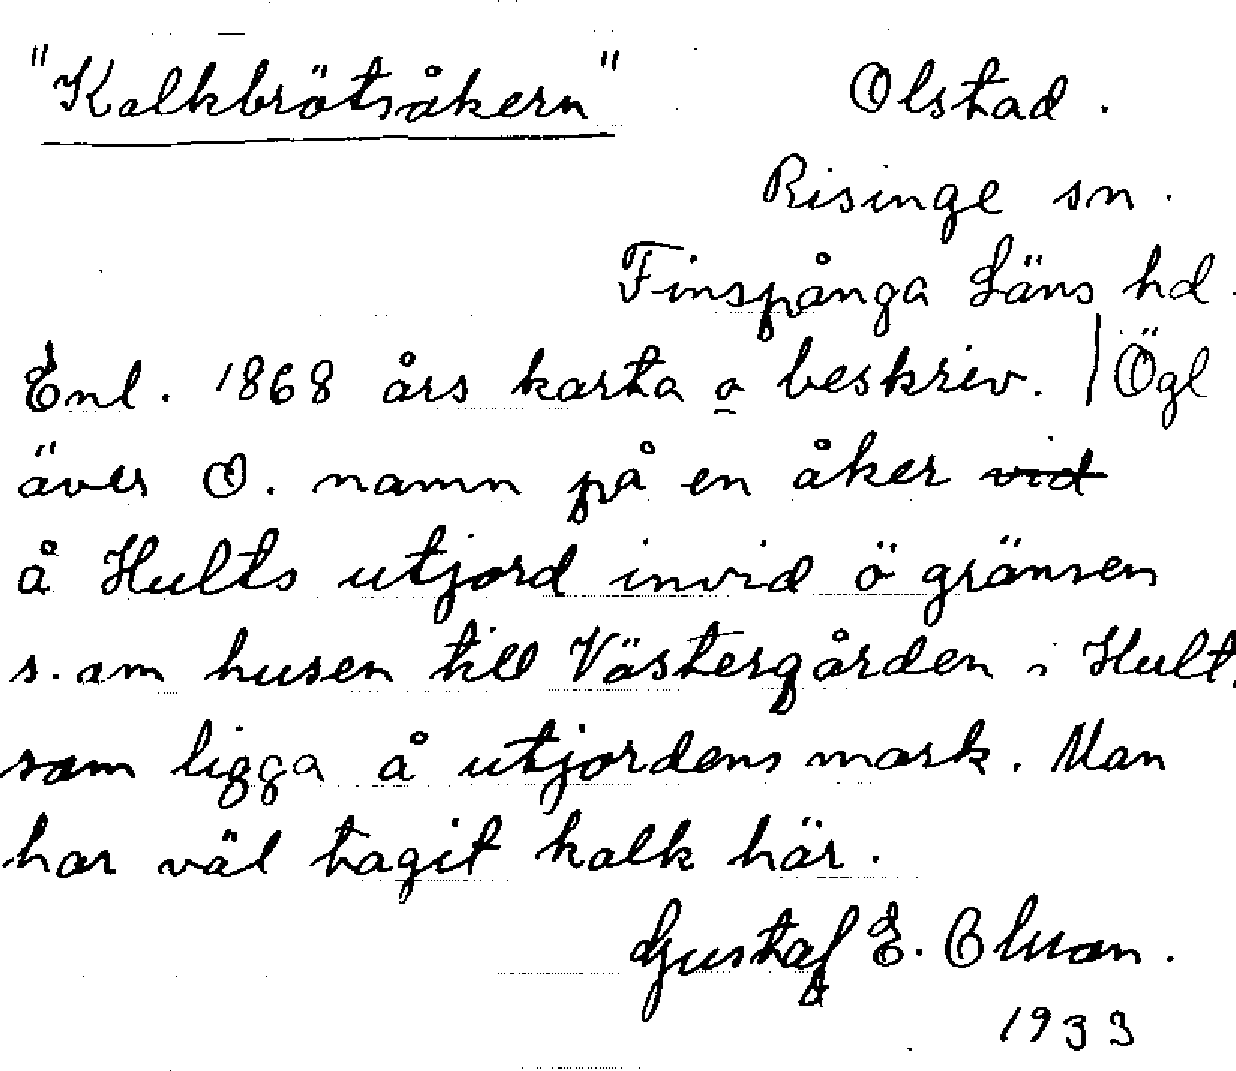 "Kalkbrötsåkern" Olstad.
Risinge sn.
Finspånga Läns hd.
Enl. 1868 års karta o beskriv. | Ögl
över O. namn på en åker vid
å Hults utjord invid ö gränsen
s. om husen till Västergården i Hult.
som ligga å utjordens mark. Man
har väl tagit kalk här.
Gustaf E. Olsson.
1933